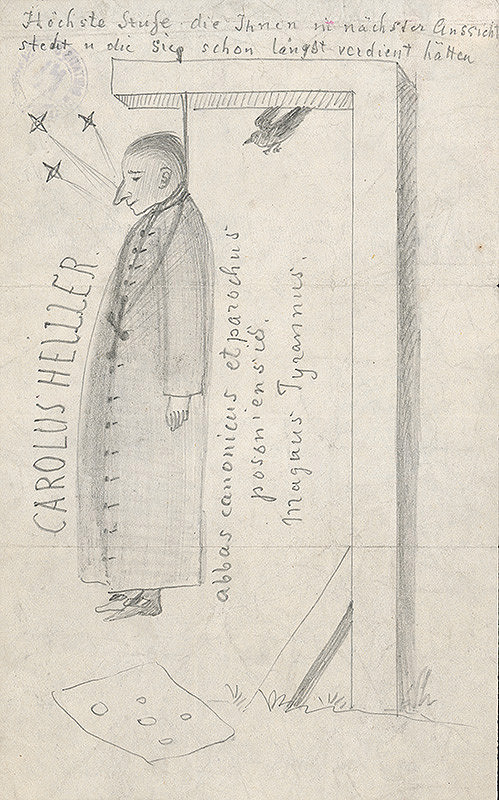 Höchste Stufe die Ihnen in nächster Aussicht
steht u die Sie schon längst verdient hätten
CAROLUS HELLLER.
abbas canonicus et parochus
posoniensis.
Magnus Tyrannus.